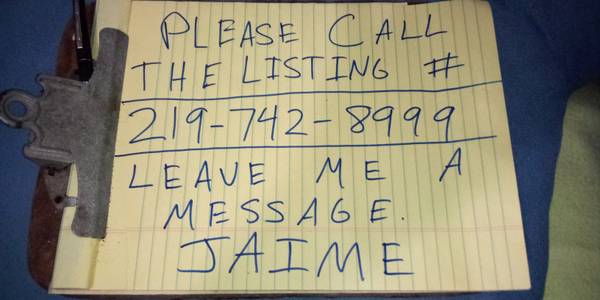 PLEASE CALL
THE LISTING #
219-742-8999
LEAVE ME A
MESSAGE.
JAIME